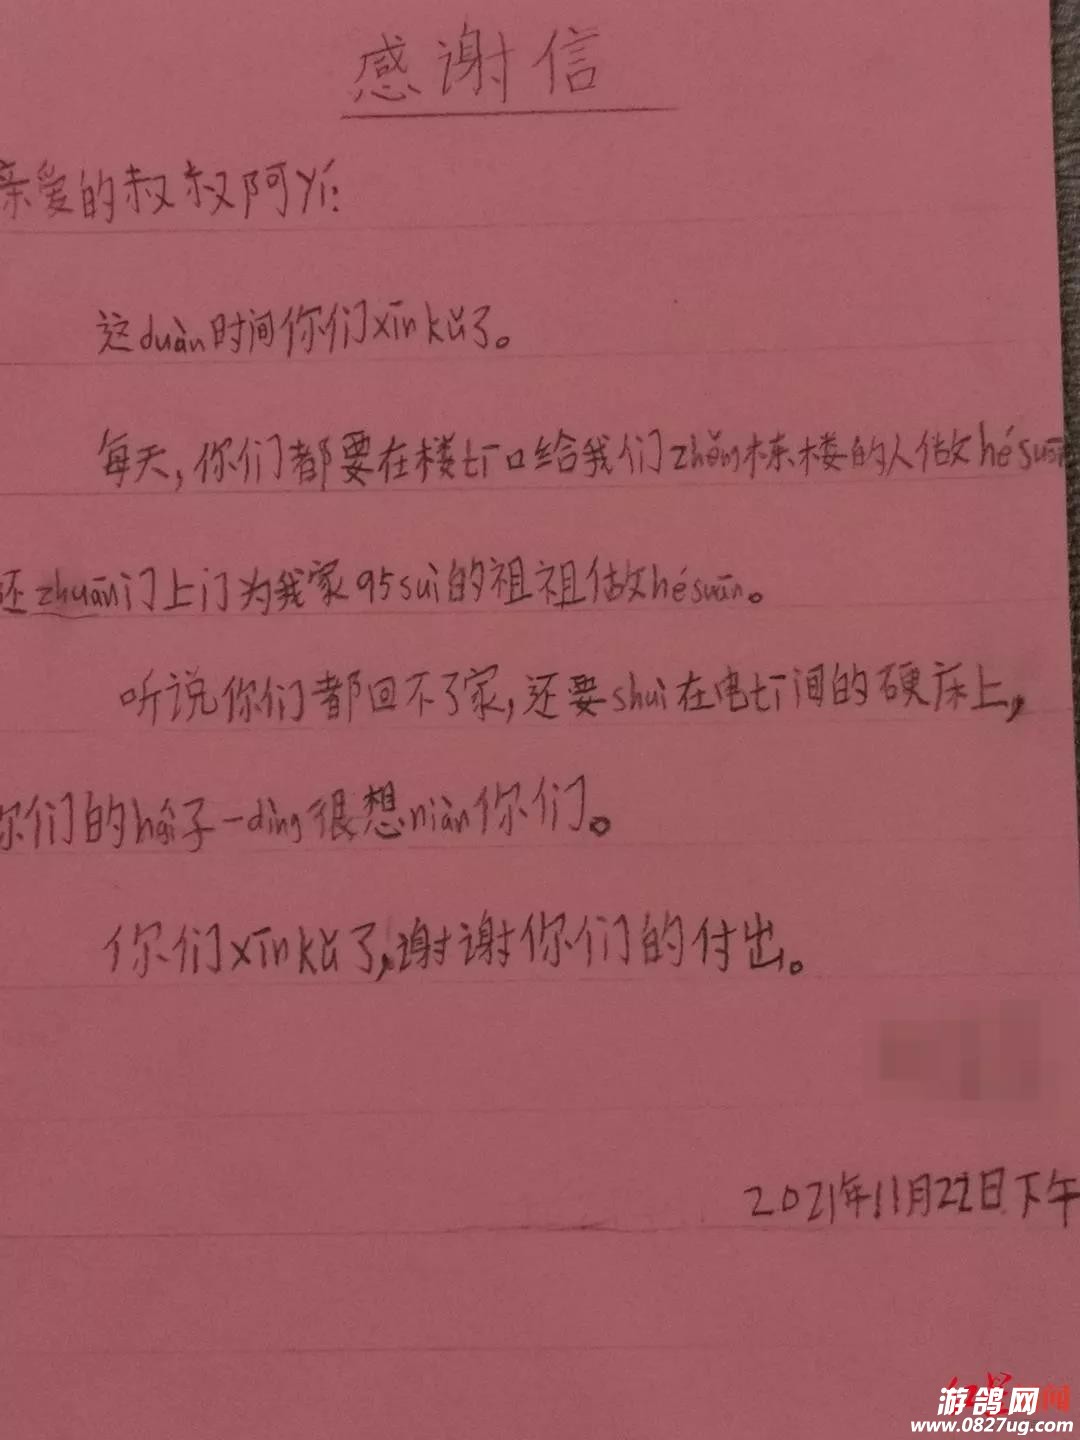 感谢信
亲爱的叔叔阿yí:
这duàn时间你们xīnkǔ了。
每天,你们都要在楼tī口给我们zhěng栋楼的人做hésuān
还zhuān门上门为我家95suì的祖祖做hésuān。
听说你们都回不了家,还要shuì在电tī间的硬床上,
你们的hái子一dìng很想niàn你们。
你们xīnkǔ了,谢谢你们的付出。
2021年11月22日下午
游鸽网
www.0827ug.com